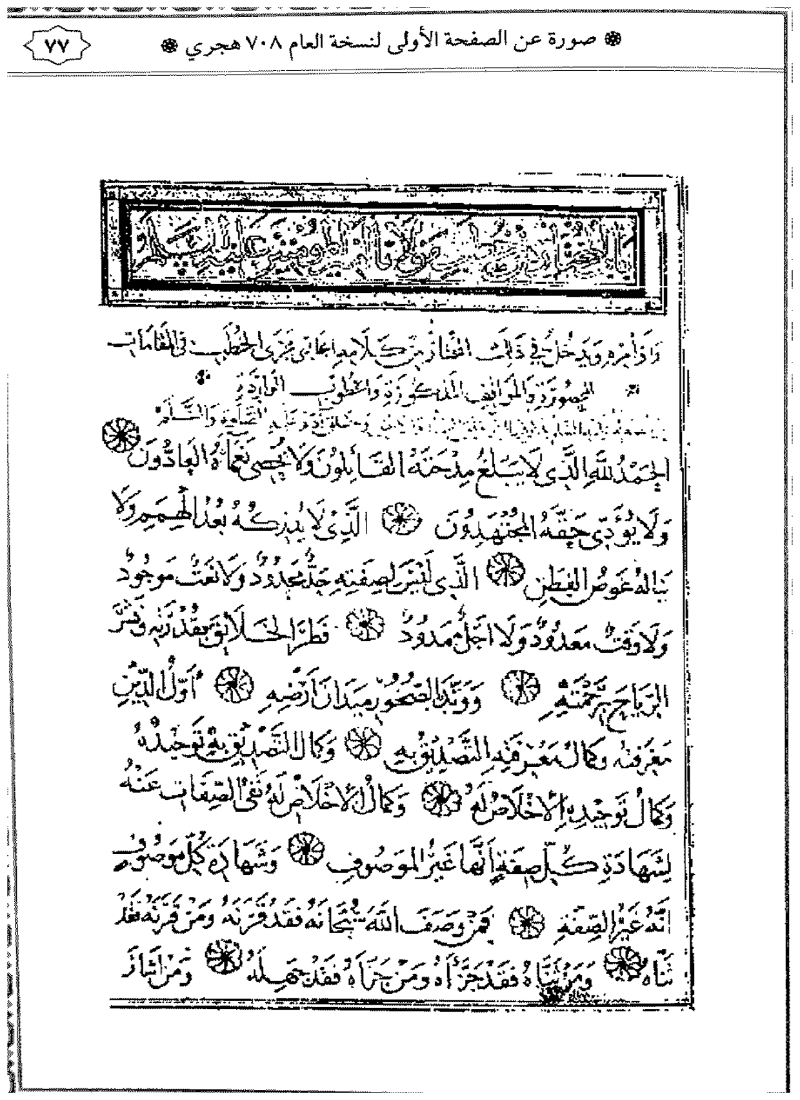 ❁ صورة عن الصفحة الأولى لنسخة العام ٧٠٨ هجري ❁
٧٧
باب المختار من خطب مولانا أمير المؤمنين عليه السلم
وأوامره ويدخل في ذلك المختار من كلامه الجاري مجرى الخطب في المقامات
المحصورة والمواقف المذكورة والخطوب الواردة
الحمد لله الذي لا يبلغ مدحته القائلون ولا يحصي نعماه العادون
ولا يؤدي حقه المجتهدون ❁ الذي لا يدركه بعد الهمم ولا
يناله غوص الفطن ❁ الذي ليس لصفته حد محدود ولا نعت موجود
ولا وقت معدود ولا أجل ممدود ❁ فطر الخلائق بقدرته ونشر
الرياح برحمته ❁ ووتد بالصخور ميدان أرضه ❁ أول الدين
معرفته وكمال معرفته التصديق به ❁ وكمال التصديق به توحيده
وكمال توحيده الإخلاص له ❁ وكمال الإخلاص له نفي الصفات عنه
لشهادة كل صفة أنها غير الموصوف ❁ وشهادة كل موصوف
أنه غير الصفة ❁ فمن وصف الله سبحانه فقد قرنه ومن قرنه فقد
ثناه ❁ ومن ثناه فقد جزأه ومن جزأه فقد جهله ❁ ومن أشار